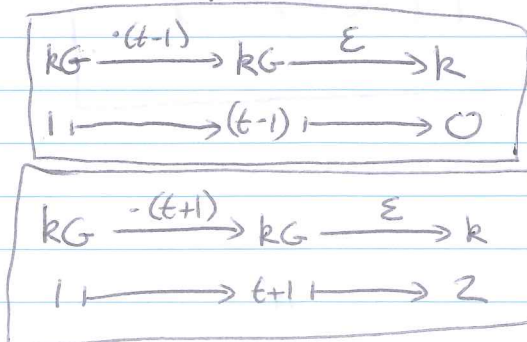 kG —·(t-1)→ kG —ε→ k
1 ↦ (t-1) ↦ 0
kG —·(t+1)→ kG —ε→ k
1 ↦ t+1 ↦ 2